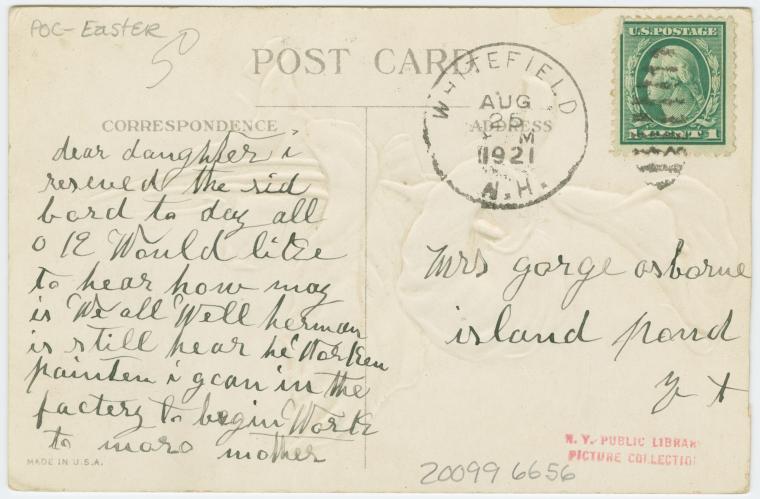 POC-Easter
50
POST CARD
U.S. POSTAGE
WHITEFIELD
AUG
25
M
1921
N.H.
CORRESPONDENCE
ADDRESS
dear daughter i
reseved the sid
bord to day all
o K Would like
to hear how may
is We all Well herman
is still hear he Worken
painten i gean in the
factery to begin Worke
to moro mother
Mrs gorge osborne
island pond
v t
MADE IN U.S.A.
N.Y. PUBLIC LIBRARY
PICTURE COLLECTION
20099 6656